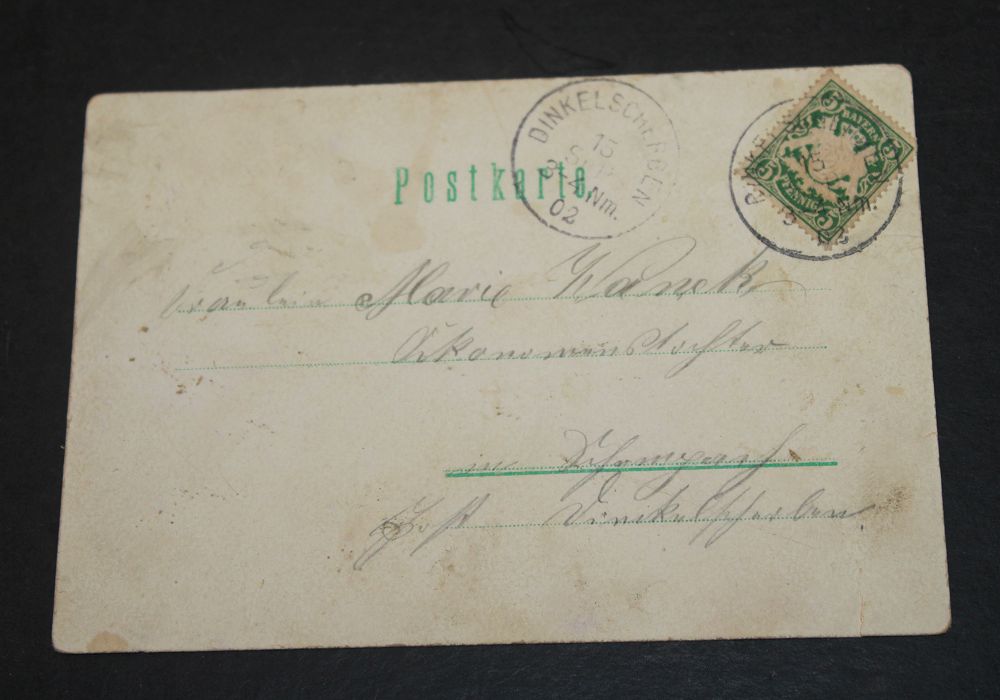 Postkarte.
DINKELSCHERBEN
15
3-4 Nm.
02
BAYERN
5
PFENNIG
Fräulein Marie
Ökonomenstochter
in
Post Dinkelscherben